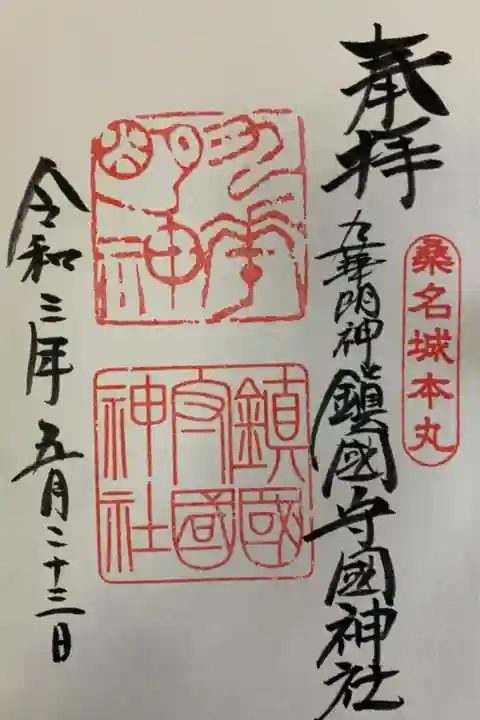 桑名城本丸
奉拝
九華明神
鎮國守國神社
九華
明神
鎮國
守國
神社
令和三年五月二十三日